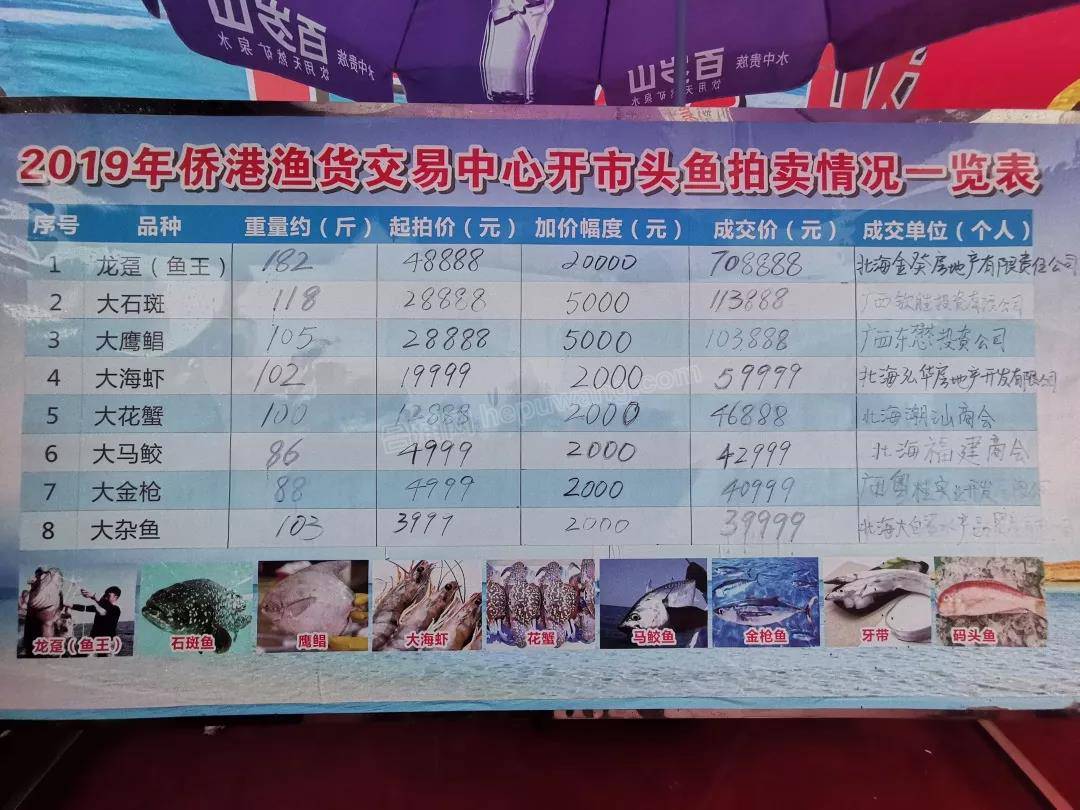 百岁山
饮用天然矿泉水
水中贵族
百岁山
饮用天然矿泉水
水中贵族
2019年侨港渔货交易中心开市头鱼拍卖情况一览表
序号 品种 重量约（斤） 起拍价（元） 加价幅度（元） 成交价（元） 成交单位（个人）
1 龙趸（鱼王） 182 48888 20000 708888 北海金葵房地产有限责任公司
2 大石斑 118 28888 5000 113888 广西钦胜投资有限公司
3 大鹰鲳 105 28888 5000 103888 广西东懋投资公司
4 大海虾 102 19999 2000 59999 北海弘华房地产开发有限公司
5 大花蟹 100 12888 2000 46888 北海潮汕商会
6 大马鲛 86 4999 2000 42999 北海福建商会
7 大金枪 88 4999 2000 40999 桂实业开发
8 大杂鱼 103 3999 2000 39999 北海大白 水产品
龙趸（鱼王） 石斑鱼 鹰鲳 大海虾 花蟹 马鲛鱼 金枪鱼 牙带 码头鱼